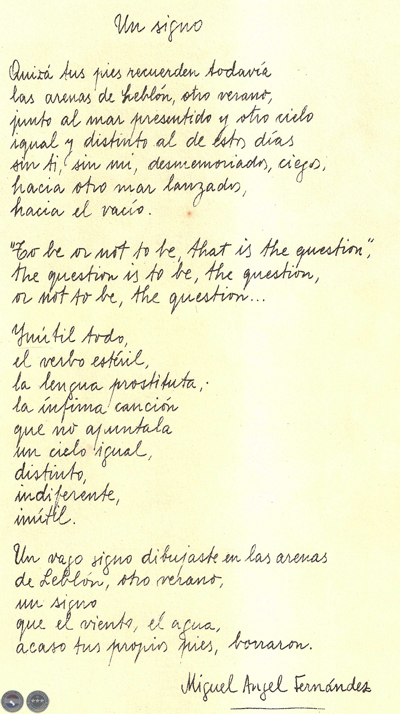 Un signo
Quizá tus pies recuerden todavía
las arenas de Leblón, otro verano,
junto al mar presentido y otro cielo
igual y distinto al de estos días
sin ti, sin mi, desmemoriados, ciegos,
hacia otro mar lanzados,
hacia el vacío.
"To be or not to be, that is the question",
the question is to be, the question,
or not to be, the question...
Inútil todo,
el verbo estéril,
la lengua prostituta,
la ínfima canción
que no apuntala
un cielo igual,
distinto,
indiferente,
inútil.
Un vago signo dibujaste en las arenas
de Leblón, otro verano,
un signo
que el viento, el agua,
acaso tus propios pies, borraron.
Miguel Angel Fernández